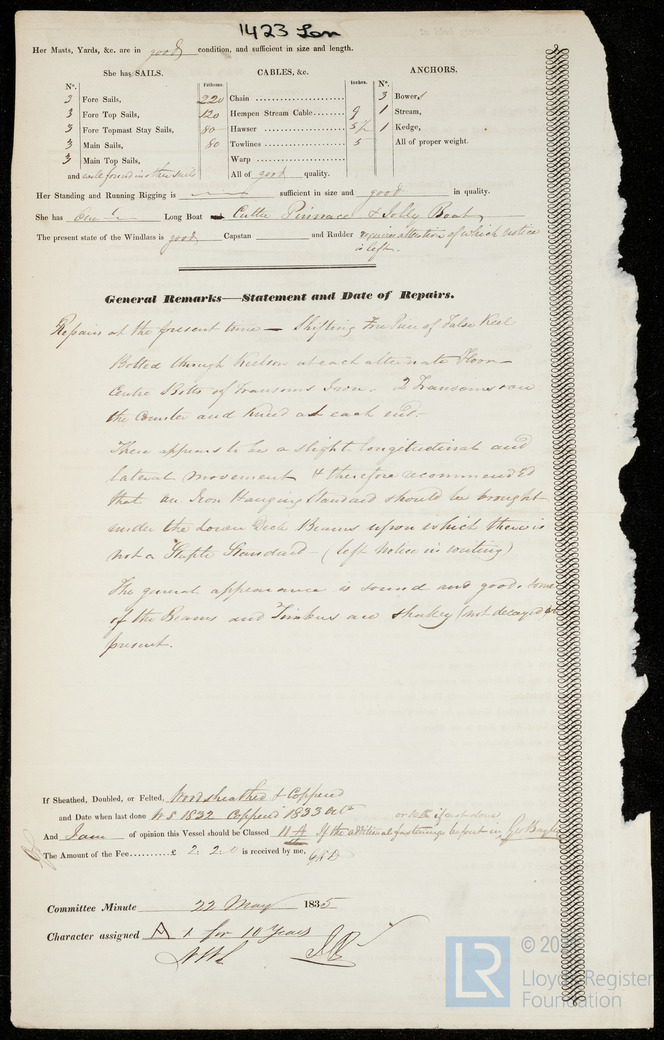 1423 Lon
Her Masts, Yards, &c. are in good condition, and sufficient in size and length.
She has SAILS. CABLES, &c. ANCHORS.
N°. Fathoms. Inches. N°.
3 Fore Sails, 220 Chain 3 Bowers
3 Fore Top Sails, 120 Hempen Stream Cable 9 1 Stream,
3 Fore Topmast Stay Sails, 80 Hawser 5½ 1 Kedge,
3 Main Sails, 80 Towlines 5 All of proper weight.
3 Main Top Sails, Warp
and well found in other sails All of good quality.
Her Standing and Running Rigging is sufficient in size and good in quality.
She has One Long Boat Cutter Pinnace & Jolly Boat
The present state of the Windlass is good Capstan and Rudder requires attention of which notice
is left.
General Remarks—Statement and Date of Repairs.
Repairs at the present time — Shifting Fore Piece of False Keel
Bolted through Keelson at each alternate Floor
Centre Bolts of Transoms Iron. 2 Transoms
the Counter and Kneed at each end.
There appears to be a slight longitudinal and
lateral movement & therefore recommended
that an Iron Hanging Standard should be brought
under the Lower Deck Beams upon which there is
not a Staple Standard – (left notice in writing)
The general appearance is sound and good. Some
of the Beams and Timbers are shakey (not decayed) at
present.
If Sheathed, Doubled, or Felted, Woodsheathed & Coppered
and Date when last done W S 1832 Coppered 1833 Octr
And I am of opinion this Vessel should be Classed If the additional fastenings be put in Geo Bayley
The Amount of the Fee £ 2. 2. 0 is received by me,
Committee Minute 22 May 1835
Character assigned A 1 for 10 Years
LR
© 20
Lloyd's Register
Foundation